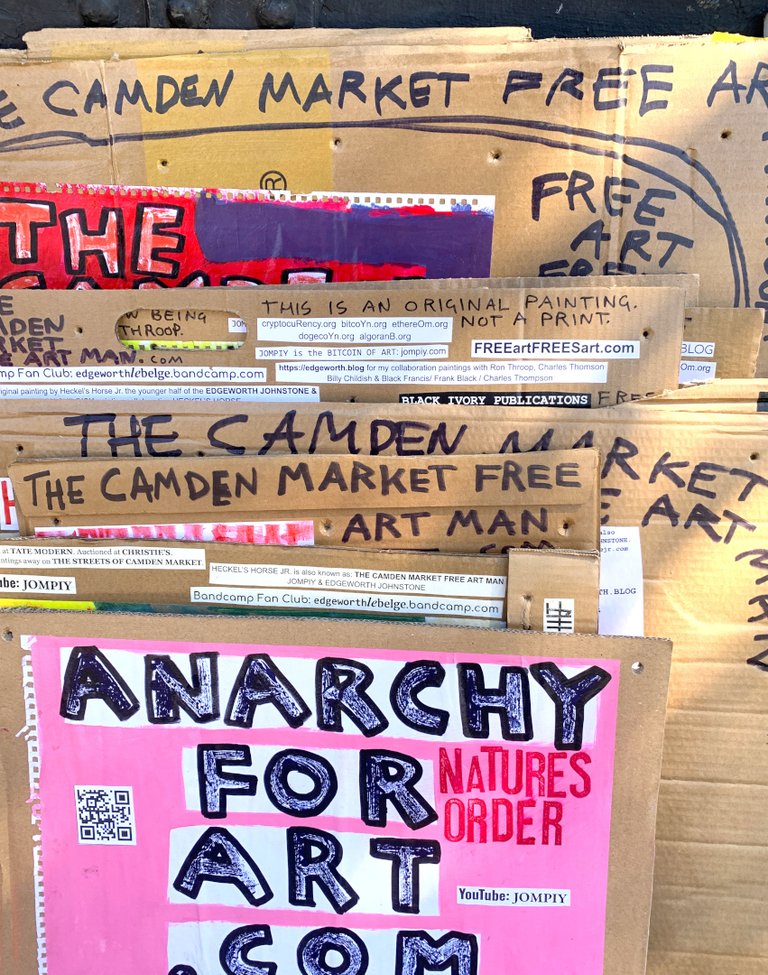 CAMDEN MARKET FREE AR
®
FREE
ART
FREE
THE
CAMDE
W BEING
THROOP.
THIS IS AN ORIGINAL PAINTING.
NOT A PRINT.
cryptocuRency.org bitcoYn.org ethereOm.org
dogecoYn.org algoranB.org
JOMPIY is the BITCOIN OF ART: jompiy.com
FREEartFREESart.com
BLOG
Om.org
MDEN
RKET
E ART MAN.COM
mp Fan Club: edgeworthlebelge.bandcamp.com
https://edgeworth.blog for my collaboration paintings with Ron Throop, Charles Thomson
Billy Childish & Black Francis/ Frank Black / Charles Thompson
original painting by Heckel's Horse Jr. the younger half of the EDGEWORTH JOHNSTONE &
BLACK IVORY PUBLICATIONS
FREE
THE CAMDEN MARKET
ART
MAN
THE CAMDEN MARKET FREE
ART MAN
.COM
at TATE MODERN. Auctioned at CHRISTIE'S.
ntings away on THE STREETS OF CAMDEN MARKET
ube: JOMPIY
HECKEL'S HORSE JR. is also known as: THE CAMDEN MARKET FREE ART MAN
JOMPIY & EDGEWORTH JOHNSTONE
Bandcamp Fan Club: edgeworthlebelge.bandcamp.com
also
NSTONE.
jr.com
TH.BLOG
ANARCHY
FOR
ART
.COM
NATURES
ORDER
YouTube: JOMPIY